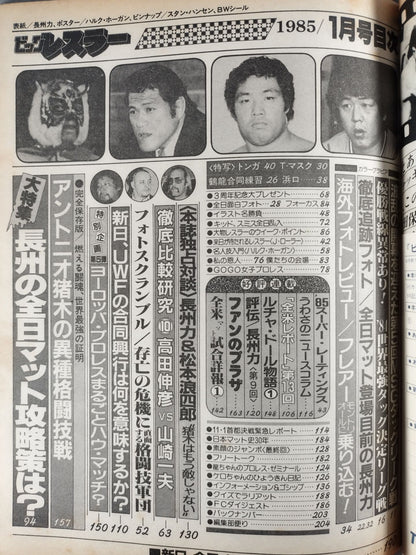 表紙/長州力、ポスター/ハルク・ホーガン、ピンナップ/スタン・ハンセン、BWシール
ビッグレスラー
1985/1月号目次
〈特写〉トンガ 40 T・マスク 30
鶴龍合同練習 26 浜口 38
3周年記念大プレゼント 68
全日面白フォト 28 フォーカス 84
イラスト名勝負 48
キッド、スミス全日乱入 72
大物レスラーのウィーク・ポイント 86
来日が待たれるレスラー(J・ローラー) 243
名人技入門(ハルク・ホーガン) 58
私の恋人 76 僕たちの会場 83
GOGO女子プロレス 78
好評連載
'85スーパー・レーティングス 43
うわさのニュースコラム 142
「全米レポート」第13回 115
ルチャ・ドール物語① 106
評伝・長州力(第9回) 148
ファンのプラザ 120
全米マット試合詳報① 163
11・1首都決戦緊急レポート 114
日本マット史30年 184
素顔のジャンボ(最終回) 128
フリートーク 182
竜ちゃんのプロレス・ゼミナール 124
クロちゃんのひょうきん日記 126
インフォメーション&ゴシップ 136
クイズでラリアット 188
FCダイジェスト 186
バックナンバー 203
編集部便り 204
海外フォトレビュー/フレアー
乗り込む! 34
徹底追跡フォト/全日マット登場目前の長州力
〈本誌独占対談〉長州力&松本浪四郎 猪木はもう敵じゃない! 130
徹底比較研究⑩高田伸彦vs山崎一夫 63
フォトスクランブル/存亡の危機に直面格闘技軍団 52
新日、UWFの合同興行は何を意味するか? 110
特別企画 第5弾 ヨーロッパ・プロレスまるごとハウ・マッチ? 150
完全保存版・燃える闘魂、世界最強の証明
アントニオ猪木の異種格闘技戦 157
大特集 長州の全日マット攻略策は? 94